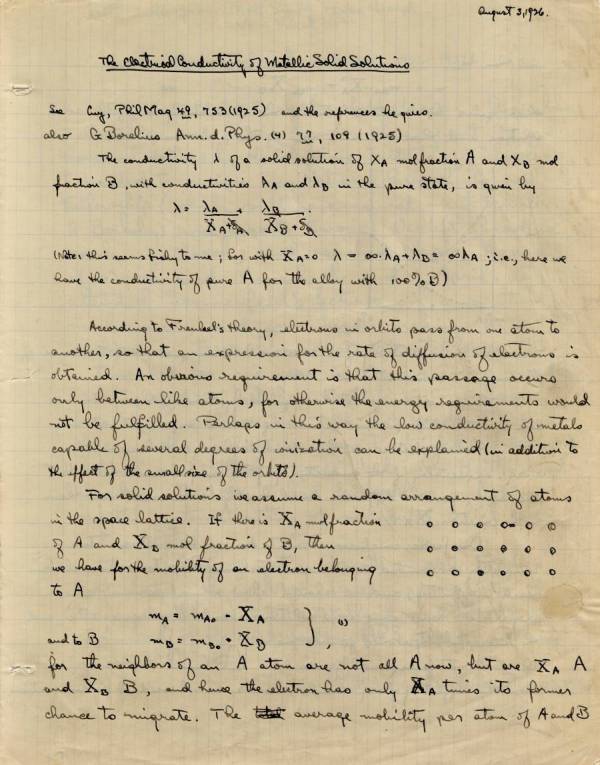 August 3, 1926.
The Electrical Conductivity of Metallic Solid Solutions
See Guy, Phil Mag 49, 753 (1925) and the references he gives.
also G Borelius Ann. d. Phys. (4) 77, 109 (1925)
The conductivity λ of a solid solution of X_A mol fraction A and X_B mol
fraction B, with conductivities λ_A and λ_B in the pure state, is given by
λ = λ_A / (X_A + δ_A) + λ_B / (X_B + δ_B).
(Note: this seems fishy to me; for with X_A = 0 λ = ∞·λ_A + λ_B = ∞λ_A; i.e., here we
have the conductivity of pure A for the alloy with 100% B)
According to Frenkel's theory, electrons in orbits pass from one atom to
another, so that an expression for the rate of diffusion of electrons is
obtained. An obvious requirement is that this passage occurs
only between like atoms, for otherwise the energy requirements would
not be fulfilled. Perhaps in this way the low conductivity of metals
capable of several degrees of ionization can be explained (in addition to
the effect of the small size of the orbits).
For solid solutions we assume a random arrangement of atoms
in the space lattice. If there is X_A mol fraction
of A and X_B mol fraction of B, then
we have for the mobility of an electron belonging
to A
m_A = m_A0 · X_A
(1)
and to B m_B = m_B0 · X_B ,
for the neighbors of an A atom are not all A now, but are X_A A
and X_B B, and hence the electron has only X_A times its former
chance to migrate. The average mobility per atom of A and B